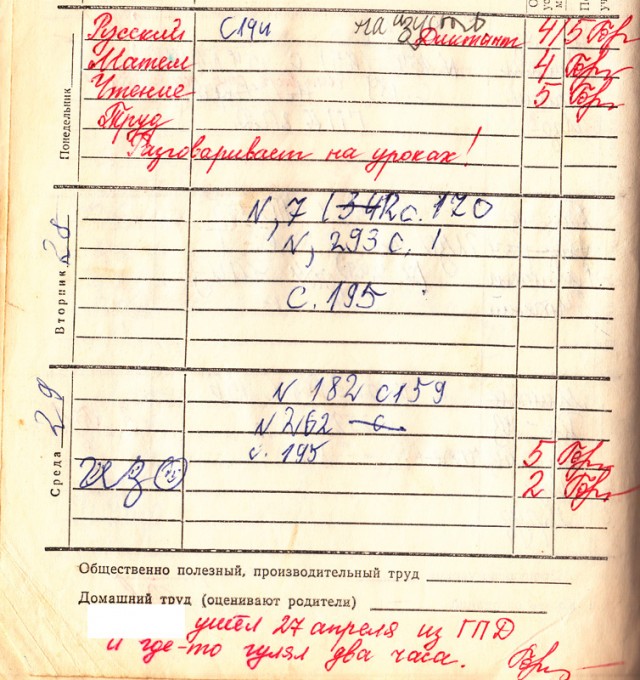 Русский С194 наизусть Диктант 4/5
Матем 4
Чтение 5
Труд
Понедельник
Разговаривает на уроках!
N, 7 (342 с. 120
N, 293 с. !
с. 195
Вторник 28
N 182 с 159
N 262 с
с. 195 5
ИЗО 2
Среда 29
Общественно полезный, производительный труд
Домашний труд (оценивают родители)
ушёл 27 апреля из ГПД
и где-то гулял два часа.